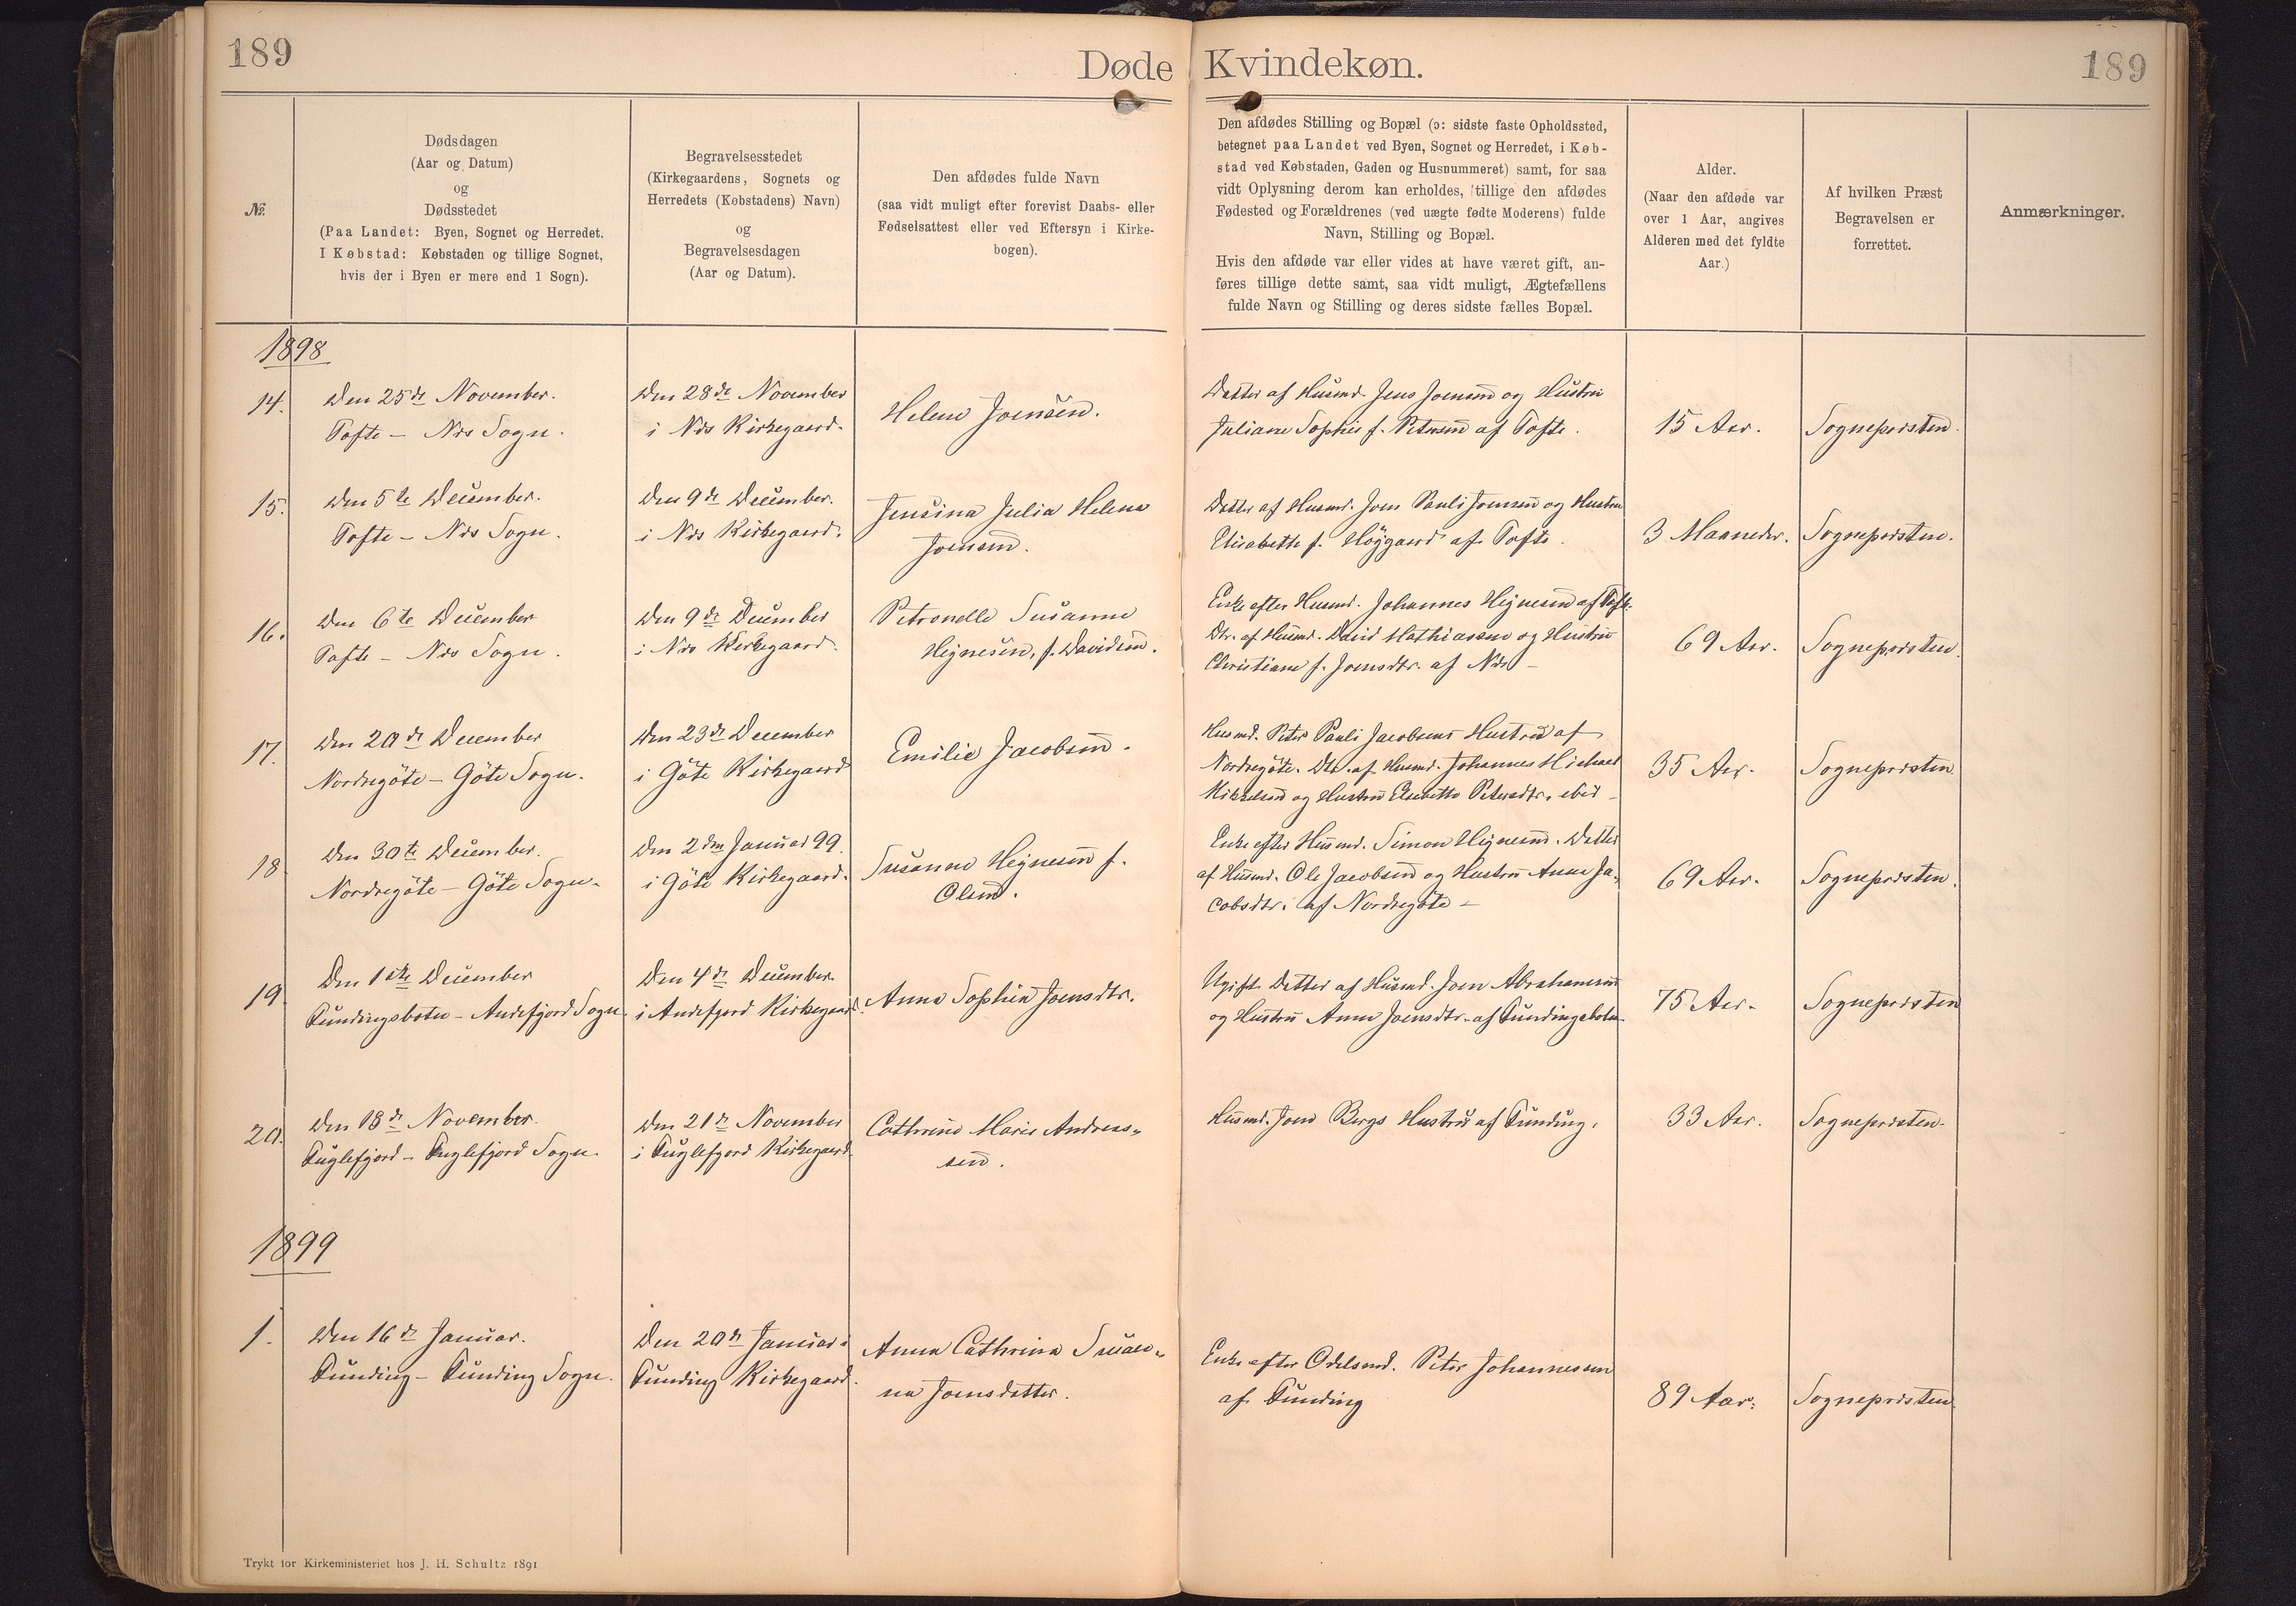 189
Døde Kvindekøn.
189
№.
Dødsdagen
(Aar og Datum)
og
Dødsstedet
(Paa Landet: Byen, Sognet og Herredet.
I Købstad: Købstaden og tillige Sognet,
hvis der i Byen er mere end 1 Sogn).
Begravelsesstedet
(Kirkegaardens, Sognets og
Herredets (Købstadens) Navn)
og
Begravelsesdagen
(Aar og Datum).
Den afdødes fulde Navn
(saa vidt muligt efter forevist Daabs- eller
Fødselsattest eller ved Eftersyn i Kirke-
bogen).
Den afdødes Stilling og Bopæl (ɔ: sidste faste Opholdssted,
betegnet paa Landet ved Byen, Sognet og Herredet, i Køb-
stad ved Købstaden, Gaden og Husnummeret) samt, for saa
vidt Oplysning derom kan erholdes, tillige den afdødes
Fødested og Forældrenes (ved uægte fødte Moderens) fulde
Navn, Stilling og Bopæl.
Hvis den afdøde var eller vides at have været gift, an-
føres tillige dette samt, saa vidt muligt, Ægtefællens
fulde Navn og Stilling og deres sidste fælles Bopæl.
Alder.
(Naar den afdøde var
over 1 Aar, angives
Alderen med det fyldte
Aar.)
Af hvilken Præst
Begravelsen er
forrettet.
Anmærkninger.
1898
14.
Den 25de November.
Tofte – Næs Sogn.
Den 28de November
i Næs Kirkegaard.
Helene Joensen.
Datter af Husmd. Jens Joensen og Hustru
Juliane Sophie f. Petersen af Tofte.
15 Aar.
Sognepræsten.
15.
Den 5te December.
Tofte – Næs Sogn.
Den 9de December.
i Næs Kirkegaard.
Jensina Julia Helene
Joensen.
Datter af Husmd. Joen Pauli Joensen og Hustru
Elisabette f. Höygaard af Tofte.
3 Maaneder.
Sognepræsten.
16.
Den 6te December
Tofte – Næs Sogn.
Den 9de December
i Næs Kirkegaard.
Petronelle Susanne
Hejnesen, f. Davidsen.
Enke efter Husmd. Johannes Hejnesen af Toft.
Dtr. af Husmd. David Mathiasen og Hustru
Christiane f. Joensdtr. af Næs –
69 Aar.
Sognepræsten.
17.
Den 20de December
Nordregöte – Göte Sogn.
Den 23de December
i Göte Kirkegaard
Emilie Jacobsen.
Husmd. Peter Pauli Jacobsens Hustru af
Nordregöte. Dtr. af Husmd. Johannes Michael
Mikkelsen og Hustru Elsebette Petersdtr. ibid –
35 Aar.
Sognepræsten
18
Den 30te December.
Nordregöte – Göte Sogn.
Den 2den Januar 99.
i Göte Kirkegaard.
Susanne Hejnesen f.
Olsen.
Enke efter Husmd. Simon Hejnesen. Datter
af Husmd. Ole Jacobsen og Hustru Anne Ja-
cobsdtr. af Nordregöte –
69 Aar.
Sognepræsten.
19
Den 1ste December
Fundingsbotn – Andefjord Sogn.
Den 4de December
i Andefjord Kirkegaard.
Anne Sophia Joensdtr.
Ugift. Datter af Husmd. Joen Abrahamsen
og Hustru Anne Joensdtr. af Fundingsbotn
75 Aar.
Sognepræsten
20.
Den 18de November.
Fuglefjord – Fuglefjord Sogn.
Den 21de November
i Fuglefjord Kirkegaard.
Cathrine Marie Andreas-
sen.
Husmd. Joen Bergs Hustru af Funding.
33 Aar.
Sognepræsten.
1899
1.
Den 16de Januar.
Funding – Funding Sogn.
Den 20de Januar i
Funding Kirkegaard.
Anna Cathrina Susan-
na Joensdatter.
Enke efter Odelsmd. Peter Johannessen
af Funding
89 Aar.
Sognepræsten.
Trykt for Kirkeministeriet hos J. H. Schultz 1891